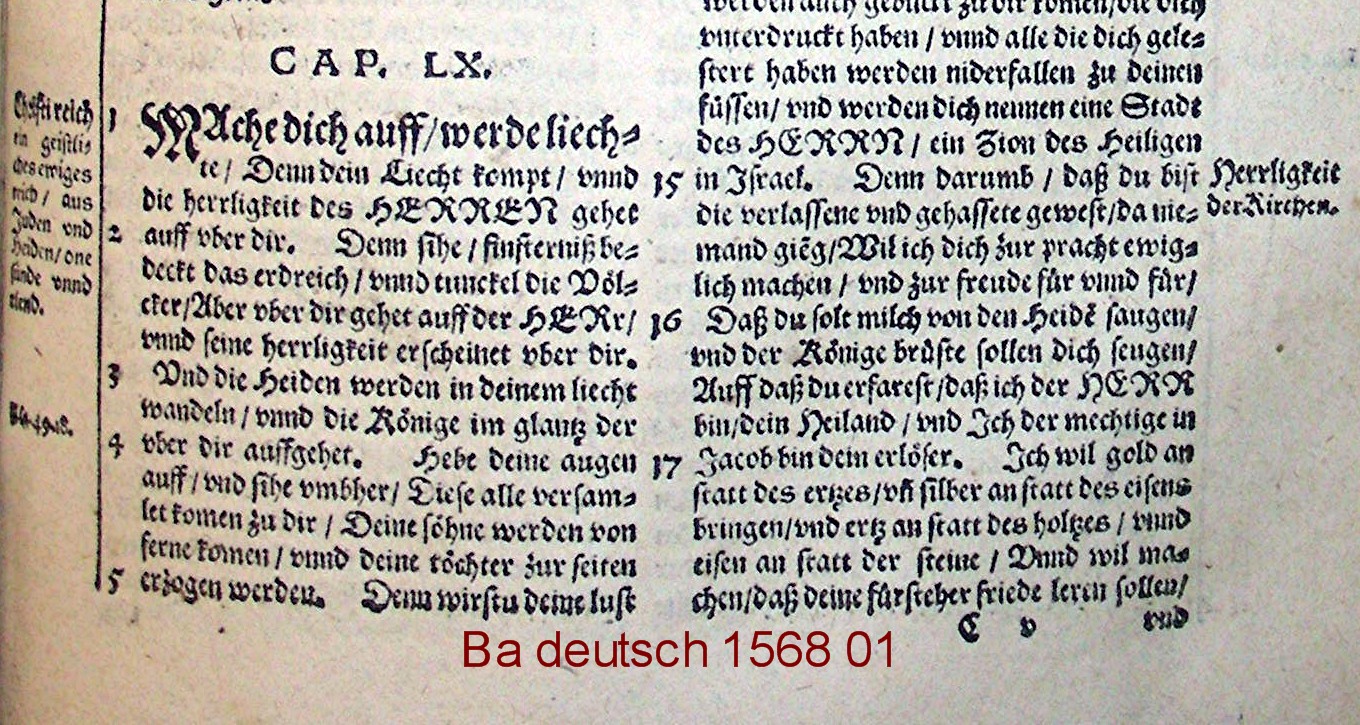 CAP. LX.
Chꝛisti reich
ein geistli-
ches ewiges
reich / aus
Juden vnd
Heiden / one
sünde vnnd
elend.
1 MAche dich auff / werde liech-
te / Denn dein Liecht kompt / vnnd
die herrligkeit des HERREN gehet
2 auff vber dir. Denn sihe / finsterniß be-
deckt das erdreich / vnnd tunckel die Völ-
cker / Aber vber dir gehet auff der HERr /
vnnd seine herrligkeit erscheinet vber dir.
3 Vnd die Heiden werden in deinem liecht
wandeln / vnnd die Könige im glantz der
4 vber dir auffgehet. Hebe deine augen
auff / vnd sihe vmbher / Diese alle versam-
let komen zu dir / Deine söhne werden von
ferne komen / vnnd deine töchter zur seiten
5 erzogen werden. Denn wirstu deine lust
werden auch gebückt zu dir komen / die dich
vnterdruckt haben / vnnd alle die dich gele-
stert haben werden niderfallen zu deinen
füssen / vnd werden dich nennen eine Stadt
des HERRN / ein Zion des Heiligen
15 in Israel. Denn darumb / daß du bist
die verlassene vnd gehassete gewest / da nie-
mand giẽg / Wil ich dich zur pracht ewig-
lich machen / vnd zur freude für vnnd für /
16 Daß du solt milch von den Heidẽ saugen /
vnd der Könige brüste sollen dich seugen /
Auff daß du erfarest / daß ich der HERR
bin / dein Heiland / vnd Ich der mechtige in
17 Jacob bin dein erlöser. Ich wil gold an
statt des ertzes / vñ silber an statt des eisens
bringen / vnd ertz an statt des holtzes / vnnd
eisen an statt der steine / Vnnd wil ma-
chen / daß deine fürsteher friede leren sollen /
C v vnd
Herrligkeit
der Kirchen.
Ba deutsch 1568 01